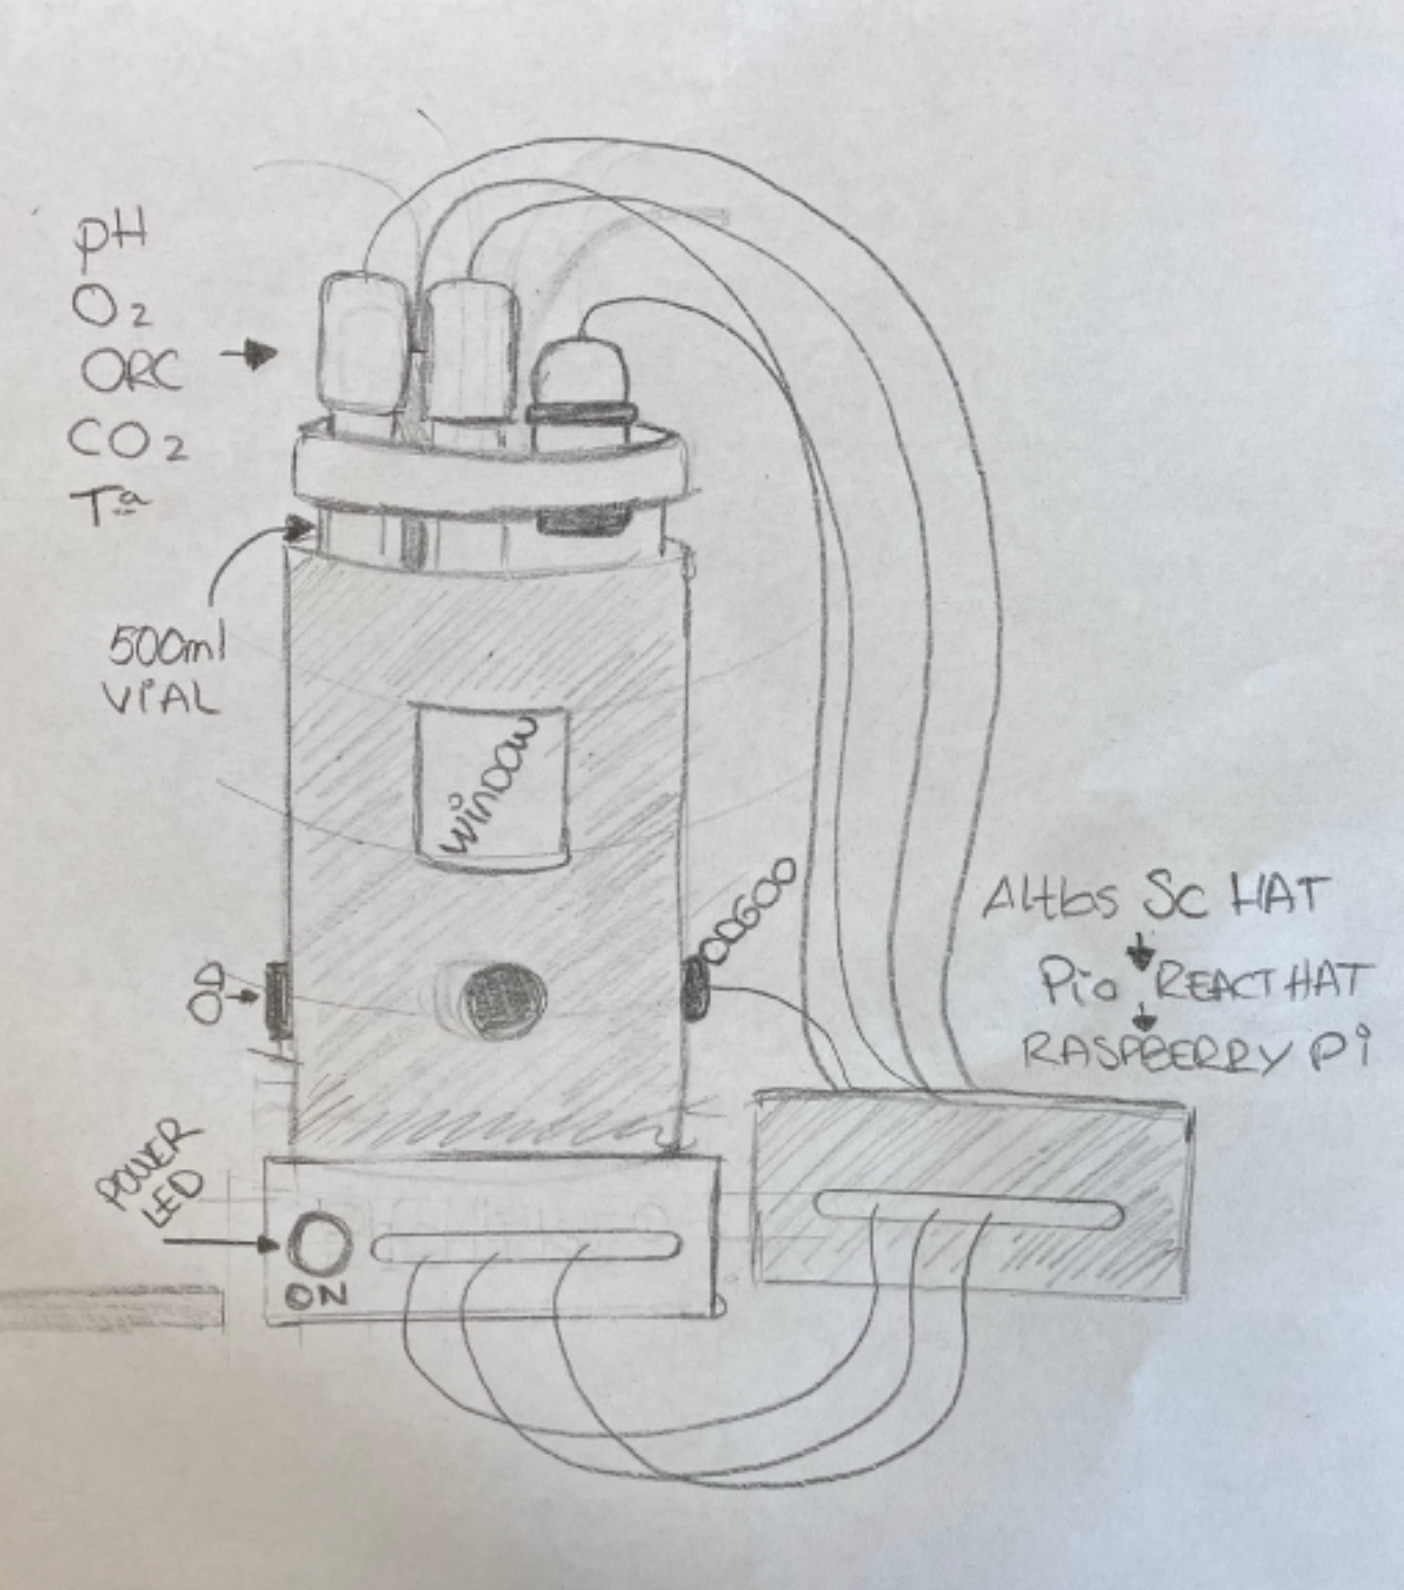 pH
O2
ORC
CO2
Tª
500ml
ViAL
WiNDOW
OD
OD600
Altlas Sc HAT
Pio REACT HAT
RASPBERRY Pi
POWER
LED
ON